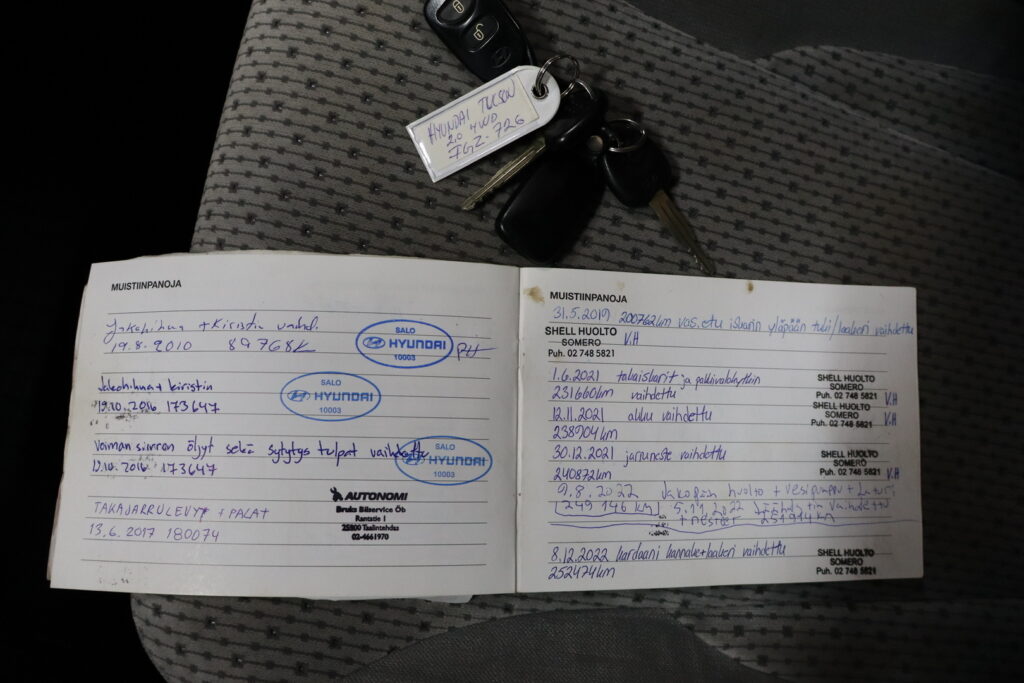 HYUNDAI TUCSON
2.0 4WD
FGZ-726
MUISTIINPANOJA
Jakohihna + Kiristin vaihd.
19.8-2010 89768K
SALO
HYUNDAI
10003
Jakohihna + kiristin
19.10.2016 173647
HYUNDAI
10003
Voiman siirron öljyt sekä sytytys tulpat vaihdettu
19.10.2016 173647
SALO
HYUNDAI
10003
TAKAJARRULEVYT + PALAT
13.6.2017 180074
AUTONOMI
Bruks Bilservice Öb
Rantatie 1
25800 Taalintehdas
02-4661970
MUISTIINPANOJA
31.5.2019 200762km vas. etu iskarin yläpään tuki/laakeri vaihdettu
SHELL HUOLTO
SOMERO
Puh. 02 748 5821
V.H
1.6.2021 takaiskarit ja pakkivalokytkin
231660km vaihdettu
SHELL HUOLTO
SOMERO
Puh. 02 748 5821
V.H
12.11.2021 akku vaihdettu
238904km
SHELL HUOLTO
SOMERO
Puh. 02 748 5821
V.H
30.12.2021 jarruneste vaihdettu
240872km
SHELL HUOLTO
SOMERO
Puh. 02 748 5821
V.H
9.8.2022 Jakopään huolto + vesipumppu + Laturi
(249 146 km) 5.11.2022 Jäähdytin vaihdettu
+ nesteet 251944km
8.12.2022 kardaani kannake+laakeri vaihdettu
252474km
SHELL HUOLTO
SOMERO
Puh. 02 748 5821